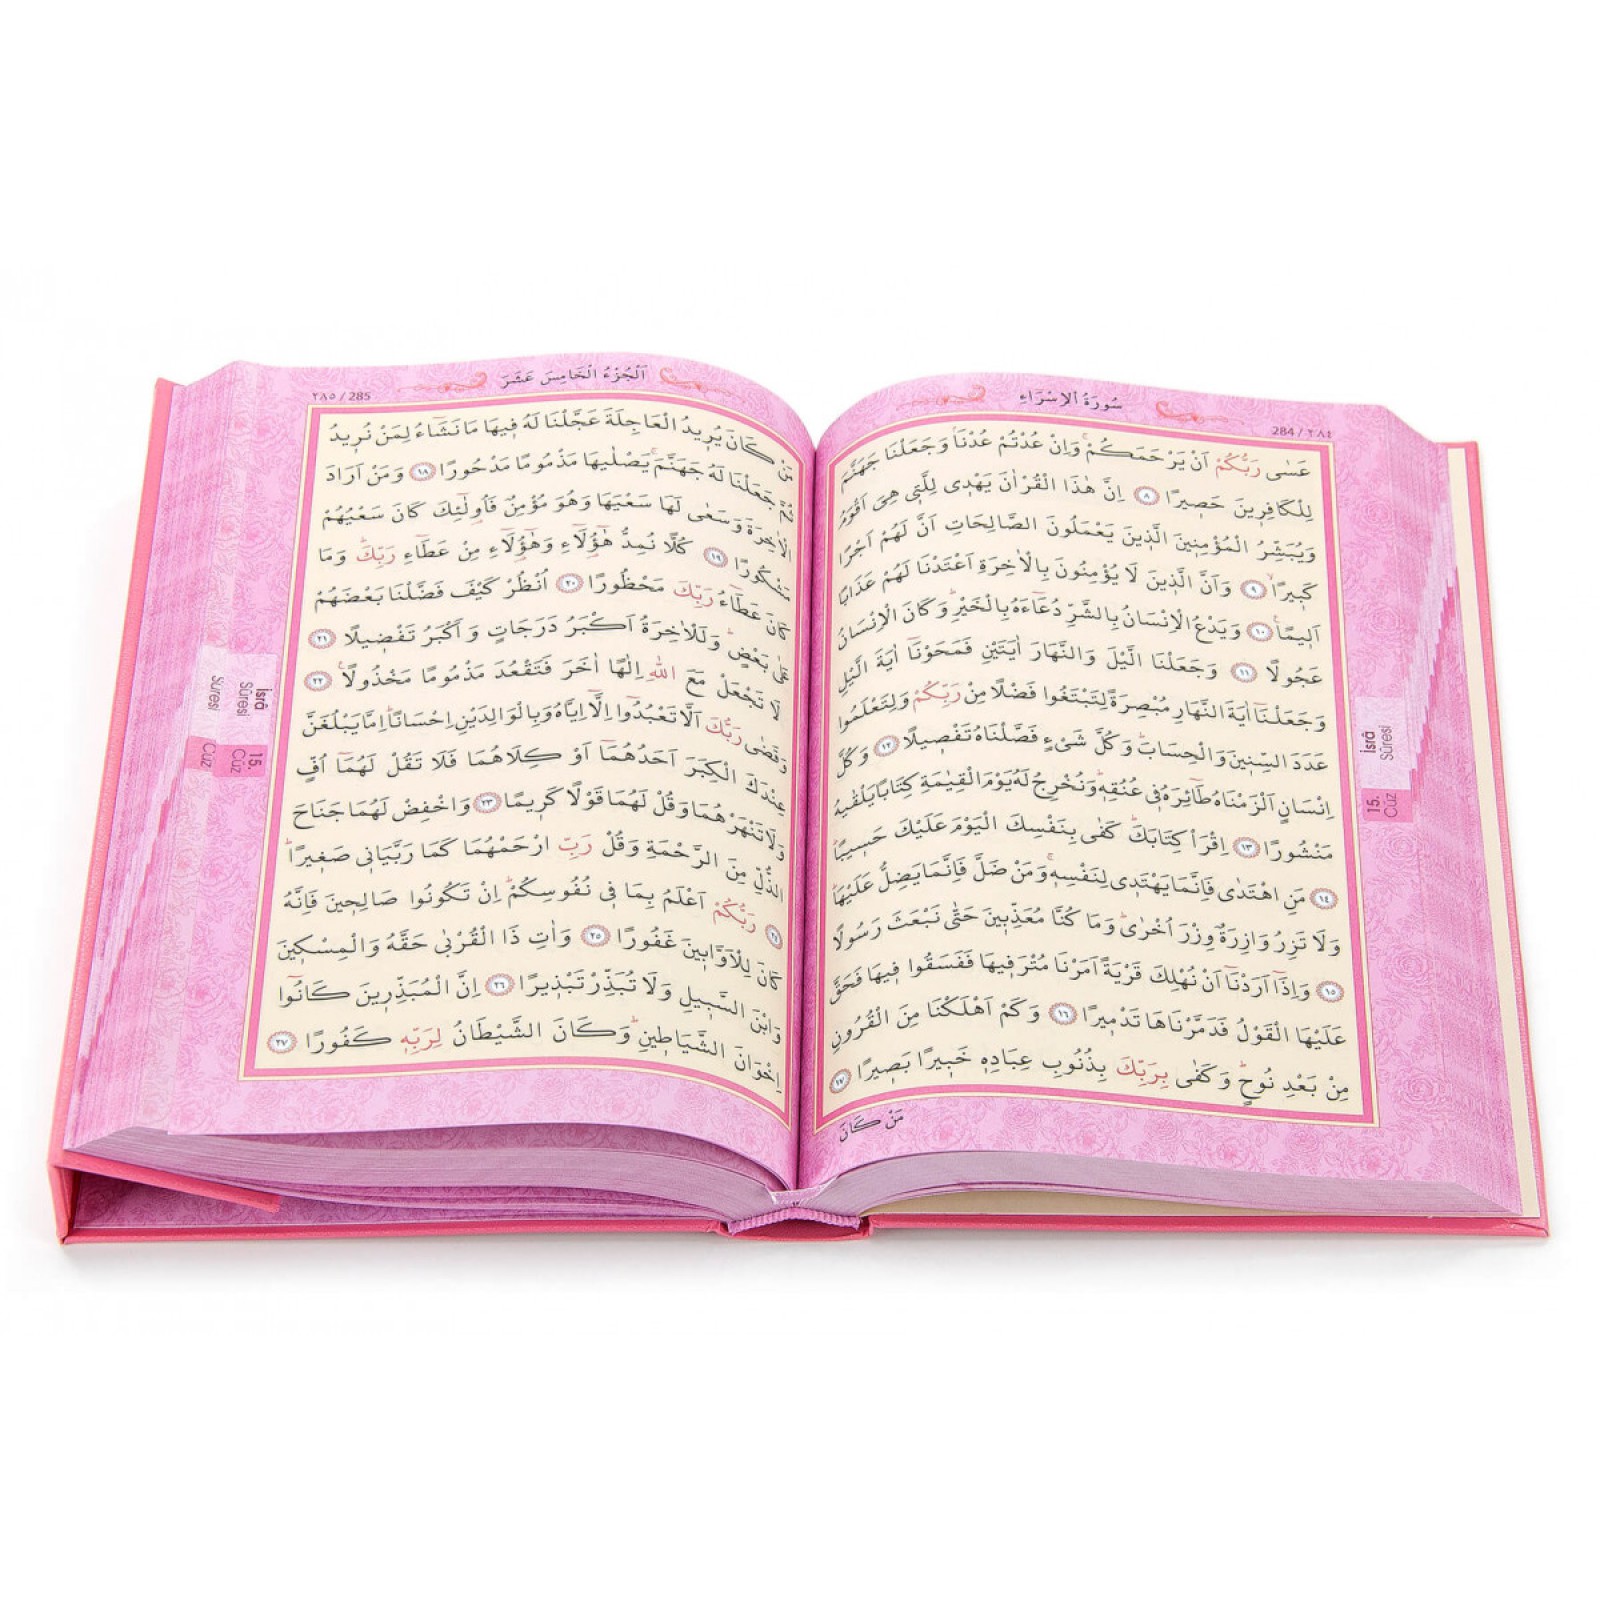 سُورَةُ الْاِسْرَاءِ
284 / ٢٨٤
عَسٰى رَبُّكُمْ اَنْ يَرْحَمَكُمْۚ وَاِنْ عُدْتُمْ عُدْنَاۢ وَجَعَلْنَا جَهَنَّمَ
لِلْكَافِرٖينَ حَصٖيرًا ﴿٨﴾ اِنَّ هٰذَا الْقُرْاٰنَ يَهْدٖى لِلَّتٖى هِىَ اَقْوَمُ
وَيُبَشِّرُ الْمُؤْمِنٖينَ الَّذٖينَ يَعْمَلُونَ الصَّالِحَاتِ اَنَّ لَهُمْ اَجْرًا
كَبٖيرًاۙ ﴿٩﴾ وَاَنَّ الَّذٖينَ لَا يُؤْمِنُونَ بِالْاٰخِرَةِ اَعْتَدْنَا لَهُمْ عَذَابًا
اَلٖيمًاࣖ ﴿١٠﴾ وَيَدْعُ الْاِنْسَانُ بِالشَّرِّ دُعَٓاءَهُ بِالْخَيْرِؕ وَكَانَ الْاِنْسَانُ
عَجُولًا ﴿١١﴾ وَجَعَلْنَا الَّيْلَ وَالنَّهَارَ اٰيَتَيْنِ فَمَحَوْنَٓا اٰيَةَ الَّيْلِ
وَجَعَلْنَٓا اٰيَةَ النَّهَارِ مُبْصِرَةً لِتَبْتَغُوا فَضْلًا مِنْ رَبِّكُمْ وَلِتَعْلَمُوا
عَدَدَ السِّنٖينَ وَالْحِسَابَؕ وَكُلَّ شَىْءٍ فَصَّلْنَاهُ تَفْصٖيلًا ﴿١٢﴾ وَكُلَّ
اِنْسَانٍ اَلْزَمْنَاهُ طَٓائِرَهُ فٖى عُنُقِهٖؕ وَنُخْرِجُ لَهُ يَوْمَ الْقِيٰمَةِ كِتَابًا يَلْقٰيهُ
مَنْشُورًا ﴿١٣﴾ اِقْرَاْ كِتَابَكَؕ كَفٰى بِنَفْسِكَ الْيَوْمَ عَلَيْكَ حَسٖيبًاؕ
﴿١٤﴾ مَنِ اهْتَدٰى فَاِنَّمَا يَهْتَدٖى لِنَفْسِهٖۚ وَمَنْ ضَلَّ فَاِنَّمَا يَضِلُّ عَلَيْهَاؕ
وَلَا تَزِرُ وَازِرَةٌ وِزْرَ اُخْرٰىؕ وَمَا كُنَّا مُعَذِّبٖينَ حَتّٰى نَبْعَثَ رَسُولًا
﴿١٥﴾ وَاِذَٓا اَرَدْنَٓا اَنْ نُهْلِكَ قَرْيَةً اَمَرْنَا مُتْرَفٖيهَا فَفَسَقُوا فٖيهَا فَحَقَّ
عَلَيْهَا الْقَوْلُ فَدَمَّرْنَاهَا تَدْمٖيرًا ﴿١٦﴾ وَكَمْ اَهْلَكْنَا مِنَ الْقُرُونِ
مِنْ بَعْدِ نُوحٍؕ وَكَفٰى بِرَبِّكَ بِذُنُوبِ عِبَادِهٖ خَبٖيرًا بَصٖيرًا ﴿١٧﴾
مَنْ كَانَ
İsrâ
Sûresi
15.
Cüz
اَلْجُزْءُ الْخَامِسَ عَشَرَ
٢٨٥ / 285
مَنْ كَانَ يُرٖيدُ الْعَاجِلَةَ عَجَّلْنَا لَهُ فٖيهَا مَا نَشَٓاءُ لِمَنْ نُرٖيدُ
ثُمَّ جَعَلْنَا لَهُ جَهَنَّمَۚ يَصْلٰيهَا مَذْمُومًا مَدْحُورًا ﴿١٨﴾ وَمَنْ اَرَادَ
الْاٰخِرَةَ وَسَعٰى لَهَا سَعْيَهَا وَهُوَ مُؤْمِنٌ فَاُولٰٓئِكَ كَانَ سَعْيُهُمْ
مَشْكُورًا ﴿١٩﴾ كُلًّا نُمِدُّ هٰٓؤُلَٓاءِ وَهٰٓؤُلَٓاءِ مِنْ عَطَٓاءِ رَبِّكَؕ وَمَا
كَانَ عَطَٓاءُ رَبِّكَ مَحْظُورًا ﴿٢٠﴾ اُنْظُرْ كَيْفَ فَضَّلْنَا بَعْضَهُمْ
عَلٰى بَعْضٍؕ وَلَلْاٰخِرَةُ اَكْبَرُ دَرَجَاتٍ وَاَكْبَرُ تَفْضٖيلًا ﴿٢١﴾
لَا تَجْعَلْ مَعَ اللّٰهِ اِلٰهًا اٰخَرَ فَتَقْعُدَ مَذْمُومًا مَخْذُولًاࣖ ﴿٢٢﴾
وَقَضٰى رَبُّكَ اَلَّا تَعْبُدُٓوا اِلَّٓا اِيَّاهُ وَبِالْوَالِدَيْنِ اِحْسَانًاؕ اِمَّا يَبْلُغَنَّ
عِنْدَكَ الْكِبَرَ اَحَدُهُمَٓا اَوْ كِلَاهُمَا فَلَا تَقُلْ لَهُمَٓا اُفٍّ
وَلَا تَنْهَرْهُمَا وَقُلْ لَهُمَا قَوْلًا كَرٖيمًا ﴿٢٣﴾ وَاخْفِضْ لَهُمَا جَنَاحَ
الذُّلِّ مِنَ الرَّحْمَةِ وَقُلْ رَبِّ ارْحَمْهُمَا كَمَا رَبَّيَانٖى صَغٖيرًاؕ
﴿٢٤﴾ رَبُّكُمْ اَعْلَمُ بِمَا فٖى نُفُوسِكُمْؕ اِنْ تَكُونُوا صَالِحٖينَ فَاِنَّهُ
كَانَ لِلْاَوَّابٖينَ غَفُورًا ﴿٢٥﴾ وَاٰتِ ذَا الْقُرْبٰى حَقَّهُ وَالْمِسْكٖينَ
وَابْنَ السَّبٖيلِ وَلَا تُبَذِّرْ تَبْذٖيرًا ﴿٢٦﴾ اِنَّ الْمُبَذِّرٖينَ كَانُٓوا
اِخْوَانَ الشَّيَاطٖينِؕ وَكَانَ الشَّيْطَانُ لِرَبِّهٖ كَفُورًا ﴿٢٧﴾
İsrâ
Sûresi
15.
Cüz
Sûresi
Cüz